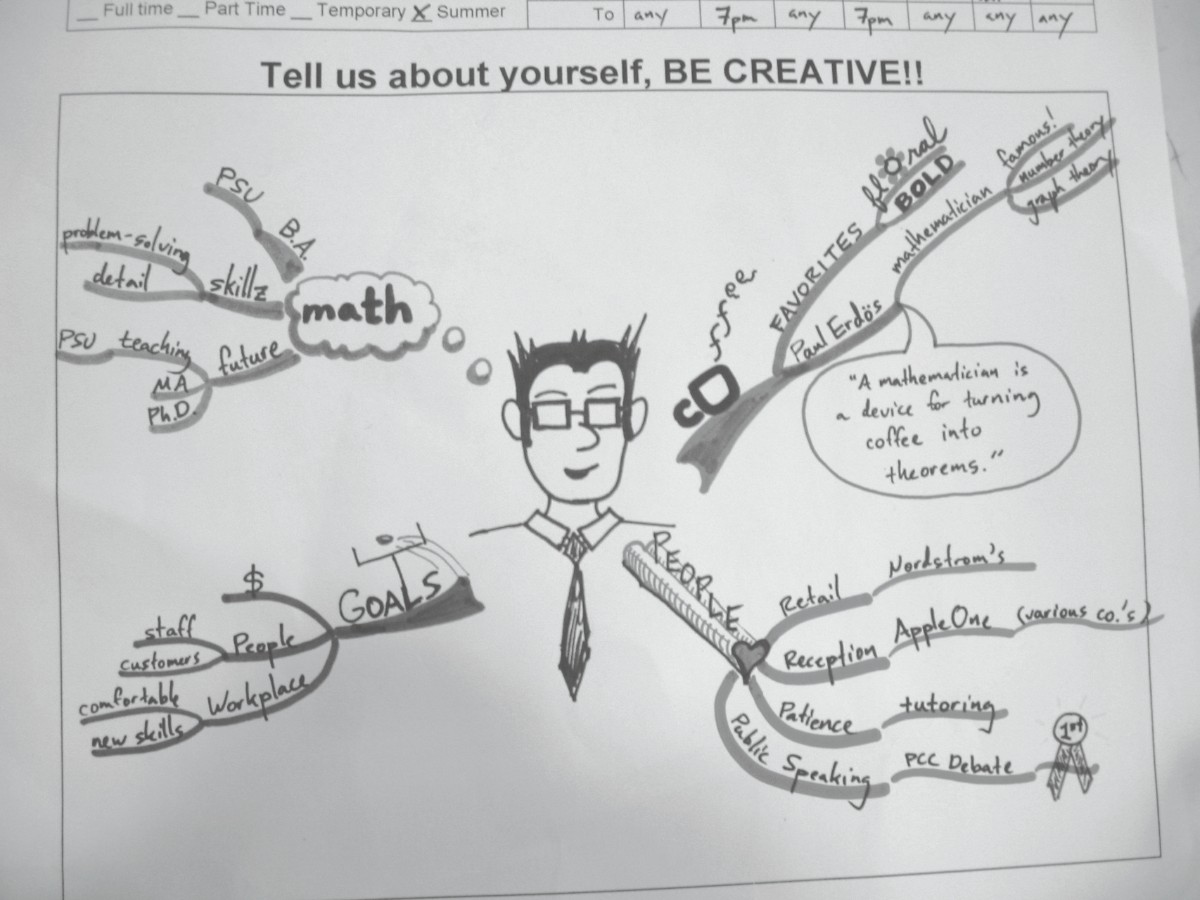 __ Full time __ Part Time __ Temporary X Summer
To any 7pm any 7pm any any any
Tell us about yourself, BE CREATIVE!!
math
B.A.
PSU
skillz
problem-solving
detail
future
PSU teaching
MA
Ph.D.
coffee
FAVORITES
floral
BOLD
Paul Erdös
mathematician
famous!
number theory
graph theory
"A mathematician is
a device for turning
coffee into
theorems."
GOALS
$
People
staff
customers
Workplace
comfortable
new skills
PEOPLE
Retail
Nordstrom's
Reception
AppleOne
(various co.'s)
Patience
tutoring
Public Speaking
PCC Debate
1st